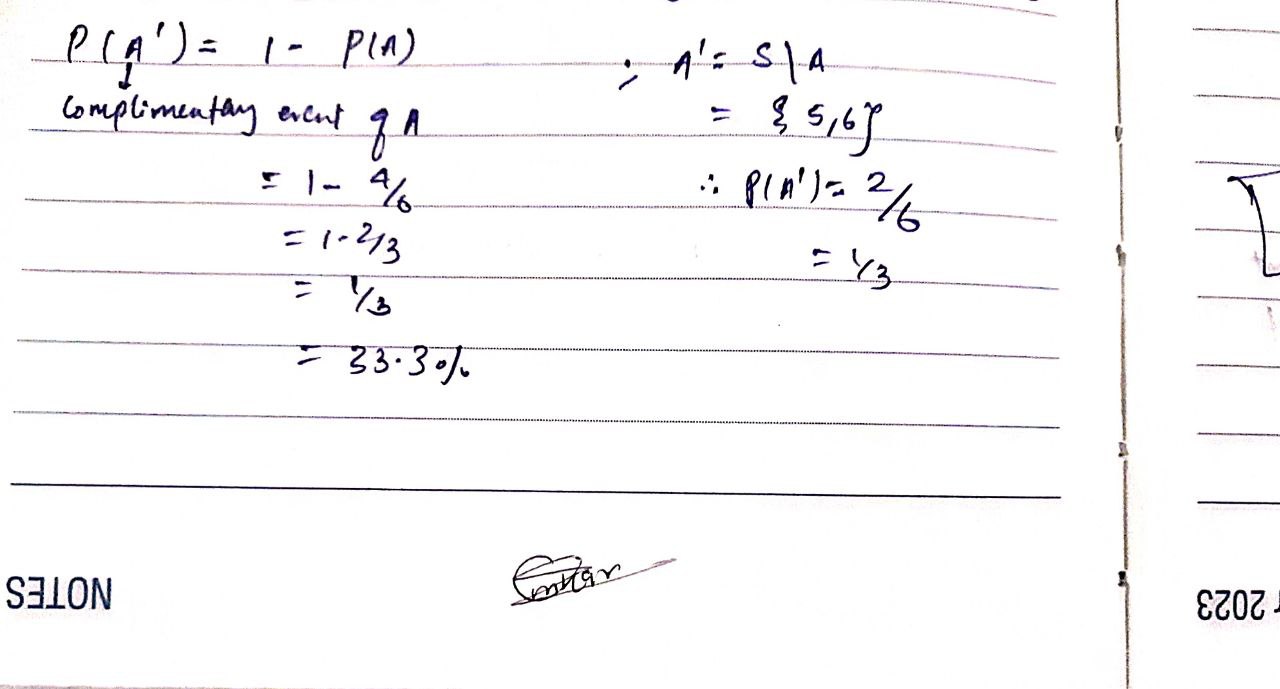 P(A') = 1 - P(A)
Complimentary event of A
= 1 - 4/6
= 1 - 2/3
= 1/3
= 33.3%
; A' = S \ A
= {5,6}
∴ P(A') = 2/6
= 1/3
NOTES
2023